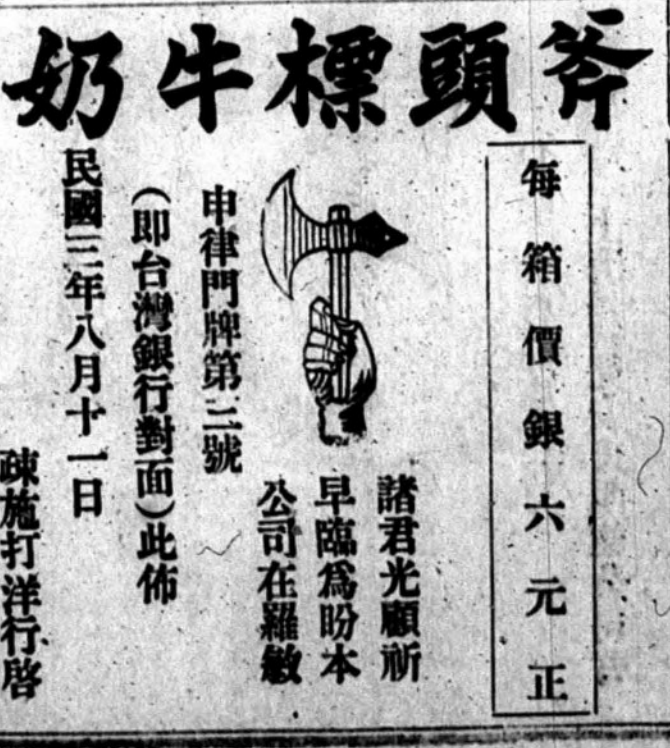 斧頭標牛奶
每箱價銀六元正
諸君光顧祈
早臨爲盼本
公司在羅敏
申律門牌第三號
(即台灣銀行對面)此佈
民國三年八月十一日
疎施打洋行啓